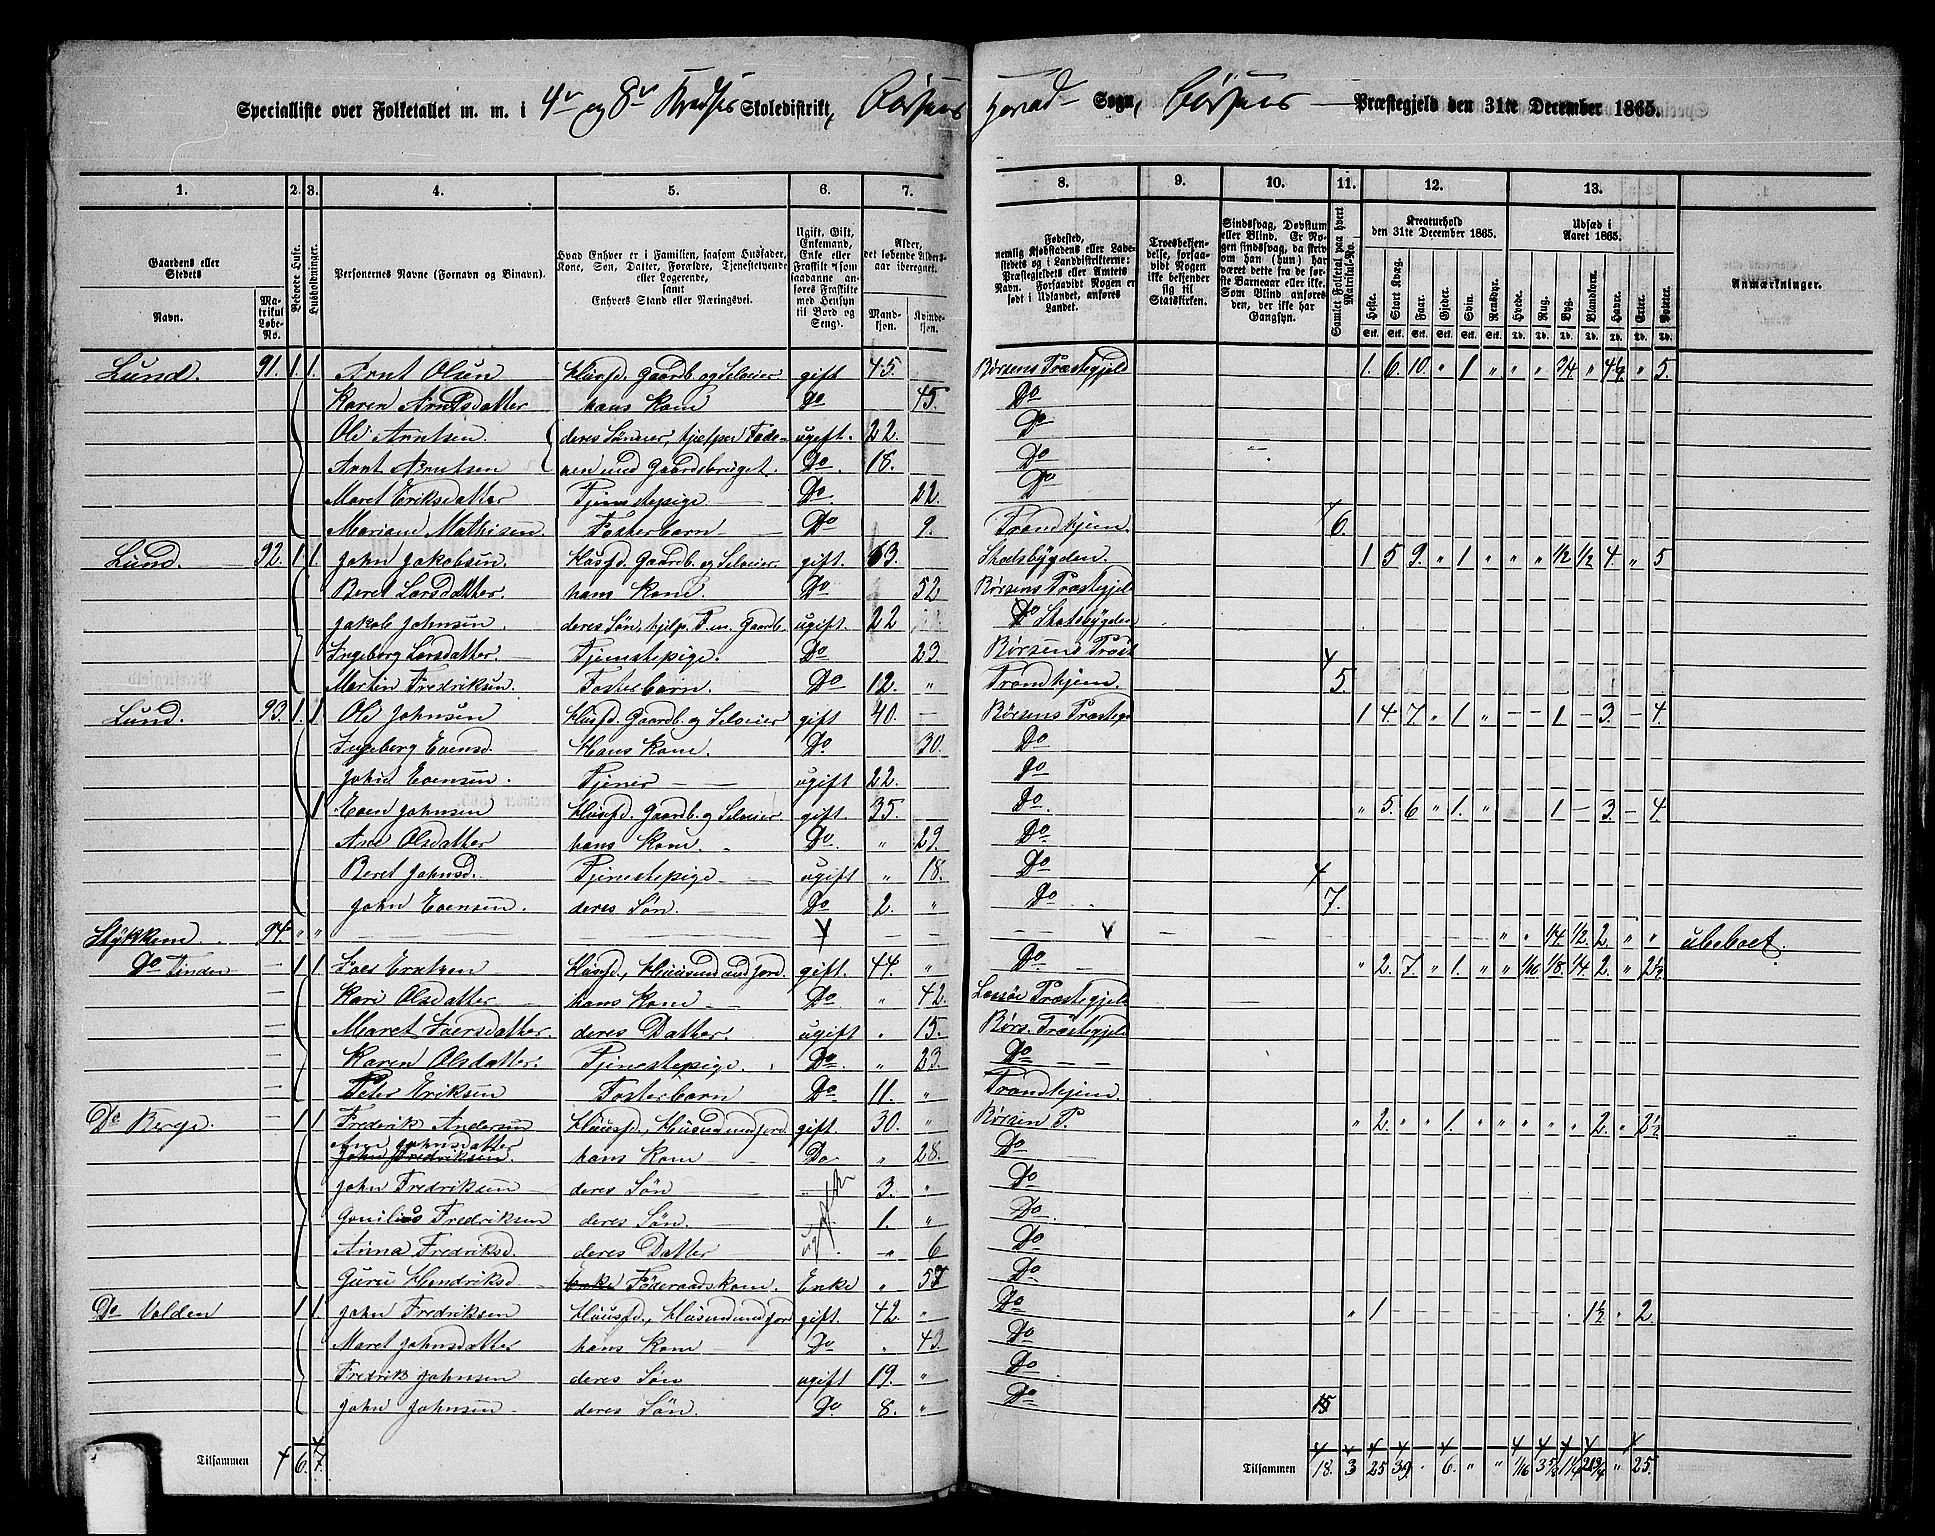 Specialliste over Folketallet m. m. i 4de og 8de Kredses Skoledistrikt, Børsens Herred Sogn, Børsens Præstegjeld den 31te December 1865.
1. 2. 3. 4. 5. 6. 7. 8. 9. 10. 11. 12. 13.
Gaardens eller Stedets
Navn.
Matrikul Løbe-No.
Beboede Huse.
Husholdninger.
Personernes Navne (Fornavn og Binavn).
Hvad Enhver er i Familien, saasom Husfader, Kone, Søn, Datter, Forældre, Tjenestetyende eller Logerende, samt Enhvers Stand eller Næringsvei.
Ugift, Gift, Enkemand, Enke eller Fraskilt (som saadanne anføres Fraskilte med Hensyn til Bord og Seng).
Alder, det løbende Aldersaar iberegnet.
Mandkjøn. Kvindekjøn.
Fødested, nemlig Kjøbstadens eller Ladestedets og i Landdistrikterne: Præstegjeldets eller Amtets Navn. Forsaavidt Nogen er født i Udlandet, anføres Landet.
Troesbekjendelse, forsaavidt Nogen ikke bekjender sig til Statskirken.
Sindssvag, Døvstum eller Blind. Er Nogen sindssvag, da hvorvidt han (hun) har været dette fra de første Barneaar eller ikke. Som Blind anføres den, der ikke har Gangsyn.
Samlet Folketal paa hvert Matrikul-No.
Kreaturhold den 31te December 1865.
Heste. Stort Kvæg. Faar. Gjeder. Sviin. Rensdyr.
Udsæd i Aaret 1865.
Hvede. Rug. Byg. Blandkorn. Havre. Erter. Poteter.
Anmærkninger.
Lund. 91. 1. 1. Arnt Olsen Huusfd. Gaardb. og Selveier gift 45. Børsens Præstegjeld 1. 6. 10. " 1 " " " 3/4 " 4 1/2 " 5.
Karen Arntsdatter hans Kone Do 45. Do
Ole Arntsen. deres Sønner, hjelper Fade- ugift. 22. Do
Arnt Arntsen ren med Gaardsbruget. Do. 18. Do
Maret Eriksdatter Tjenestepige Do 22. Do
Mariane Mathisen. Fosterbarn Do 9. Trondhjem. 6.
Lund. 92. 1. 1 John Jakobsen. Husfd. Gaardb. og Selveier gift. 63. Stadsbygden. 1 5 9. " 1 " " " 1/2 1/2 4. " 5
Beret Larsdatter. hans Kone. Do 52 Børsens Præstegjel
Jakob Johnsen. deres Søn, hjelp. F. m. Gaardb. ugift. 22 Do Stadsbygden
Ingeborg Larsdatter. Tjenestepige. Do 23. Børsens Præst
Martin Fredriksen. Fosterbarn. Do 12. " Trondhjem. 5.
Lund. 93. 1. 1 Ole Johnsen Huusfd. Gaardb. og Selveier gift 40. Børsens Præstegj 1 4. 7 " 1 " 1 3. 4.
Ingeborg Evensd. Hans Kone. Do 30. Do
John Evensen. Tjener ugift 22. Do
1 Even Johnsen Huusfd. Gaardb. og Selveier gift. 35. Do " 5. 6 " 1. " 1 3. 4
Ane Olsdatter hans Kone. Do. " 29. Do
Beret Johnsd. Tjenestepige ugift " 18. Do
John Evensen. deres Søn. Do 2. " Do 7.
Stykkem. 94. " " " " 1/4 1/2 2. " " ubeboet.
Do Tinden 1 1 Huusfd., Huusmand m. Jord. gift. 44. " Do " 2. 7. " 1. " " 1/16 1/8 1/4 2. " 2 1/2
Kari Olsdatter hans Kone Do " 42. Præstegjeld
Maret deres Datter. ugift " 15. Børs. Præstegjeld
Karen Olsdatter. Tjenestepige. Do. " 23. Do
Peter Eriksen Fosterbarn Do 11. " Trondhjem.
Do Berge. 1 1 Fredrik Andersen Huusfd., Huusmand m. Jord. gift 30. " Børsen P. " 2. " " 1. " " " " " 2. " 2 1/2
Ane Johnsdatter
John Fredriksen. hans Kone Do " 28. Do
John Fredriksen deres Søn ugifte 3. " Do
Fredriksen deres Søn. 1. " Do.
Anna Fredriksd. deres Datter " 6 Do
Guru Hendriksd. Enke Føderaadskone. Enke " 57 Do
Do Volden 1 1. John Fredriksen Huusfd., Huusmand m. Jord gift. 42. " Do " 1 1 1/2 " 2.
Maret Johnsdatter hans Kone Do " 43. Do
Fredrik Johnsen deres Søn ugift 19. " Do
John Johnsen deres Søn. Do 8. " Do 15
Tilsammen 6. 7. Tilsammen 18. 3 25 39 " 6. " " 1/16 " 25.